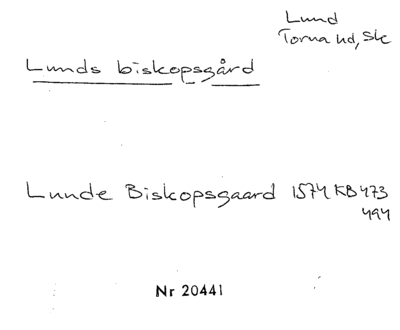 Lund
Torna hd, Sk
Lunds biskopsgård
Lunde Biskopsgaard 1574 KB 473
494
Nr 20441